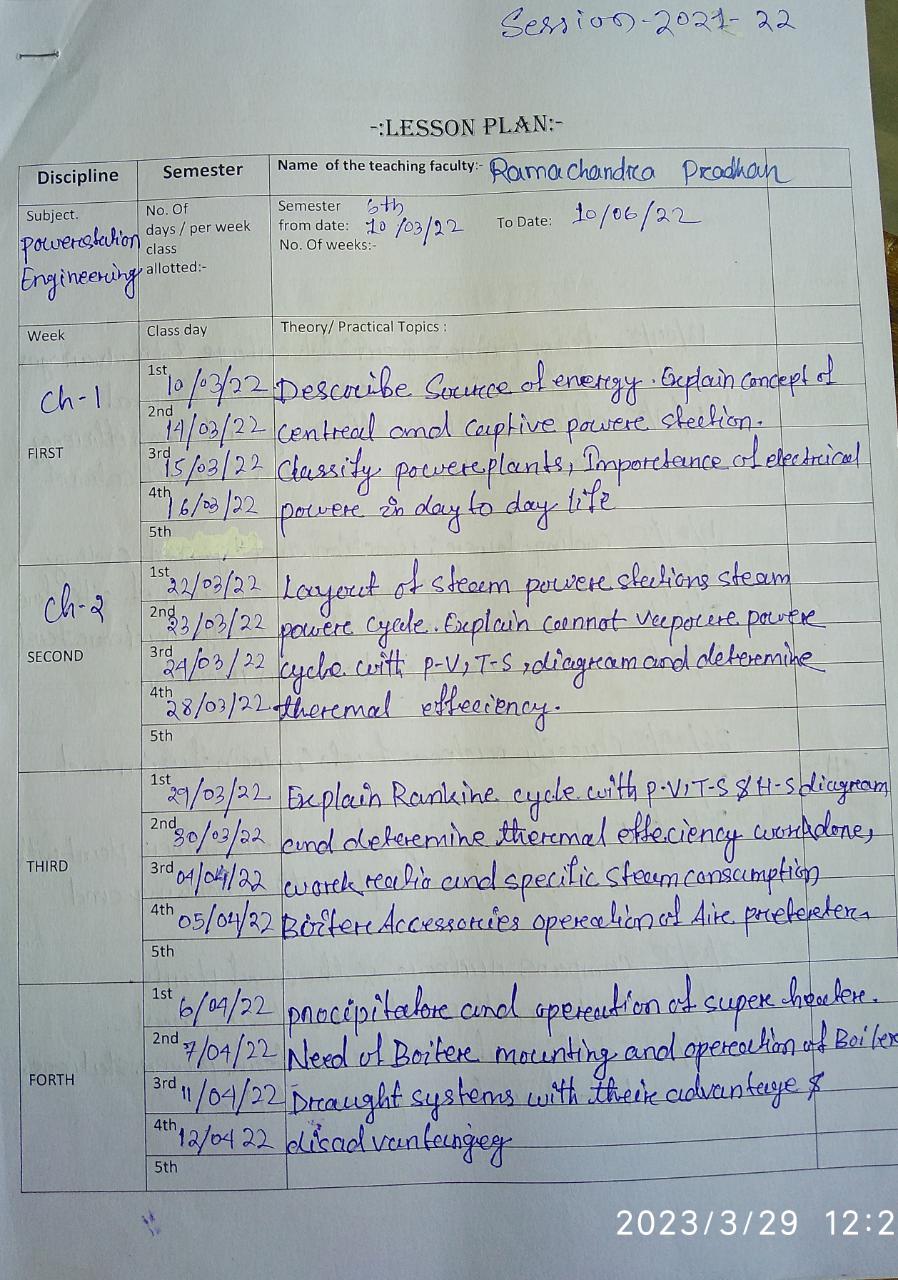 Session-2021-22
-:LESSON PLAN:-
Discipline Semester Name of the teaching faculty:- Ramachandra Pradhan
Subject. Powerstation Engineering
No. Of days / per week class allotted:-
Semester 6th from date: 10/03/22 To Date: 10/06/22
No. Of weeks:-
Week Class day Theory/ Practical Topics :
Ch-1
FIRST
1st 10/03/22 Describe Source of energy. Explain concept of
2nd 14/03/22 centreal and captive powere stection.
3rd 15/03/22 Classify powereplants, Imporctance of electrical
4th 16/03/22 powere in day to day life
5th
Ch-2
SECOND
1st 22/03/22 Layout of steam powere stections steam
2nd 23/03/22 powere cycle. Explain cannot veepocere powere
3rd 24/03/22 cycle with P-V, T-S, diagream and determine
4th 28/03/22 theremal effeciency.
5th
THIRD
1st 29/03/22 Explain Rankine cycle with P-V, T-S & H-S diagream
2nd 30/03/22 and deteremine thermal effeciency workdone,
3rd 04/04/22 worck reatio and specific steam consumption
4th 05/04/22 Boitere Accessories opereation of Aire
5th
FORTH
1st 6/04/22 and opereation of supere heatere.
2nd 7/04/22 Need of Boitere mounting and opereation of Boiler
3rd 11/04/22 Draught systems with theire advantage &
4th 12/04 22
5th
2023/3/29 12:2